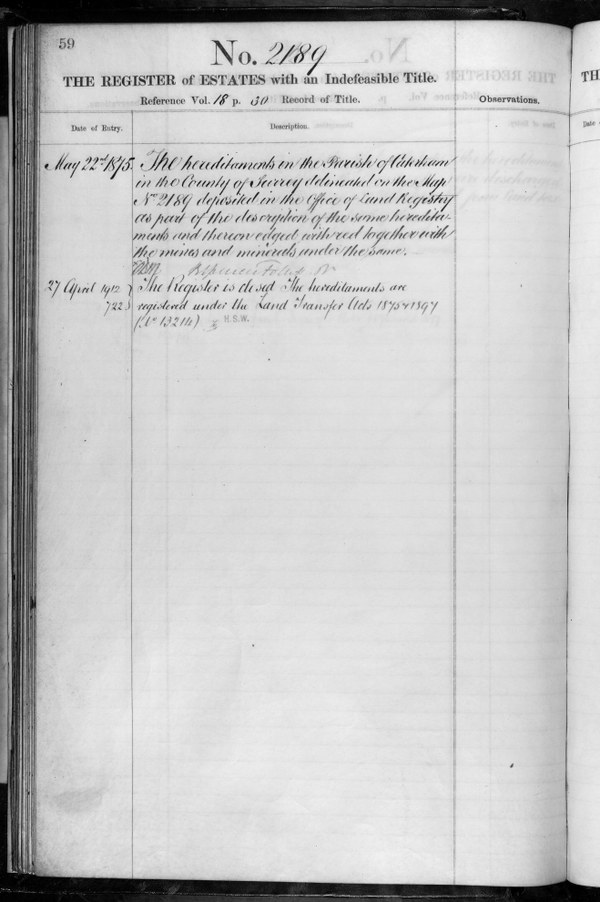 59
No. 2189
THE REGISTER of ESTATES with an Indefeasible Title.
Reference Vol. 18 p. 30 Record of Title.
Observations.
Date of Entry.
Description.
May 22nd 1875. The hereditaments in the Parish of Caterham
in the County of Surrey delineated on the Map
No 2189 deposited in the Office of Land Registry
as part of the description of the same heredita-
ments and thereon edged with red together with
the mines and minerals under the same.
27 April 1912 The Register is closed The hereditaments are
722 registered under the Land Transfer Acts 1875 & 1897
(No 13214) H.S.W.
TH
Date